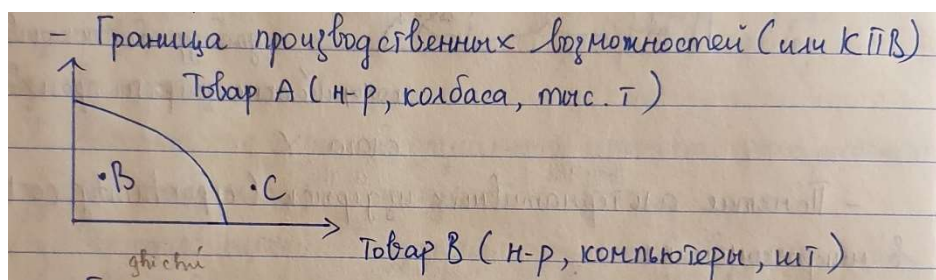 - Граница производственных возможностей (или КПВ)
Товар А (н-р, колбаса, тыс. т)
·В
·С
Товар В (н-р, компьютеры, шт)
ghi chú